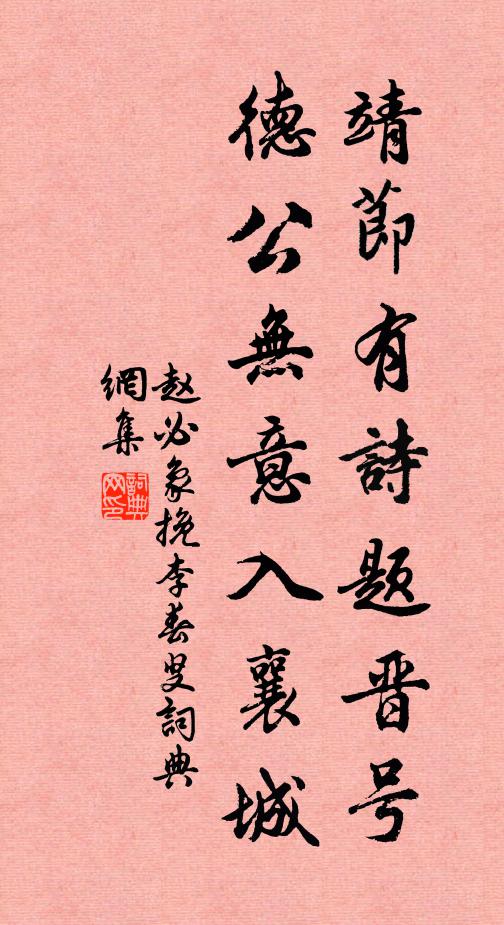 靖節有詩題晋号
德公無意入襄城
赵必象挽李春叟詞典
網集
詞典
网印